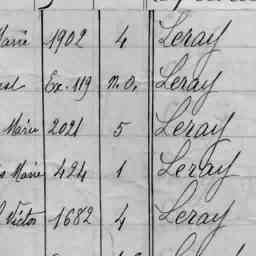 Marie 1902 4 Leray
Ex. 119 n.o. Leray
Marie 2021 5 Leray
Marie 424 1 Leray
Victor 1682 4 Leray